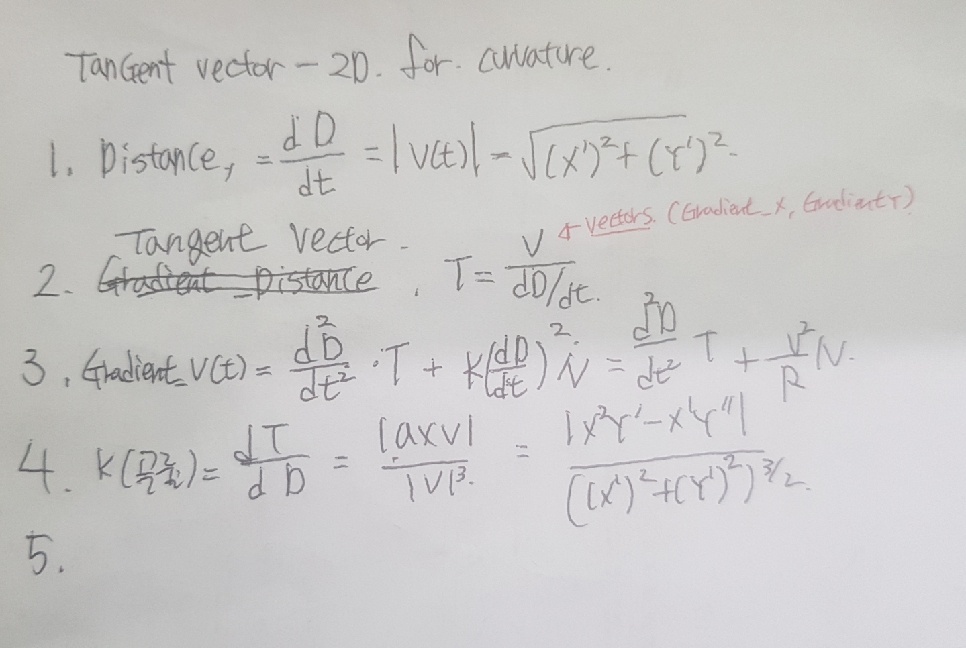 Tangent vector - 2D. for. curvature.
1. Distance, = dD/dt = |V(t)| = √((X')² + (Y')²).
Tangent vector -
2. Gradient_Distance , T = V/(dD/dt). ← vectors. (Gradient_X, Gradient Y)
3. Gradient_V(t) = d²D/dt² · T + K(dD/dt)² N = d²D/dt² T + V²/R N.
4. K(곡률) = dT/dD = |a×v|/|V|³. = |X²Y' - X'Y''|/((X')² + (Y')²)^3/2.
5.